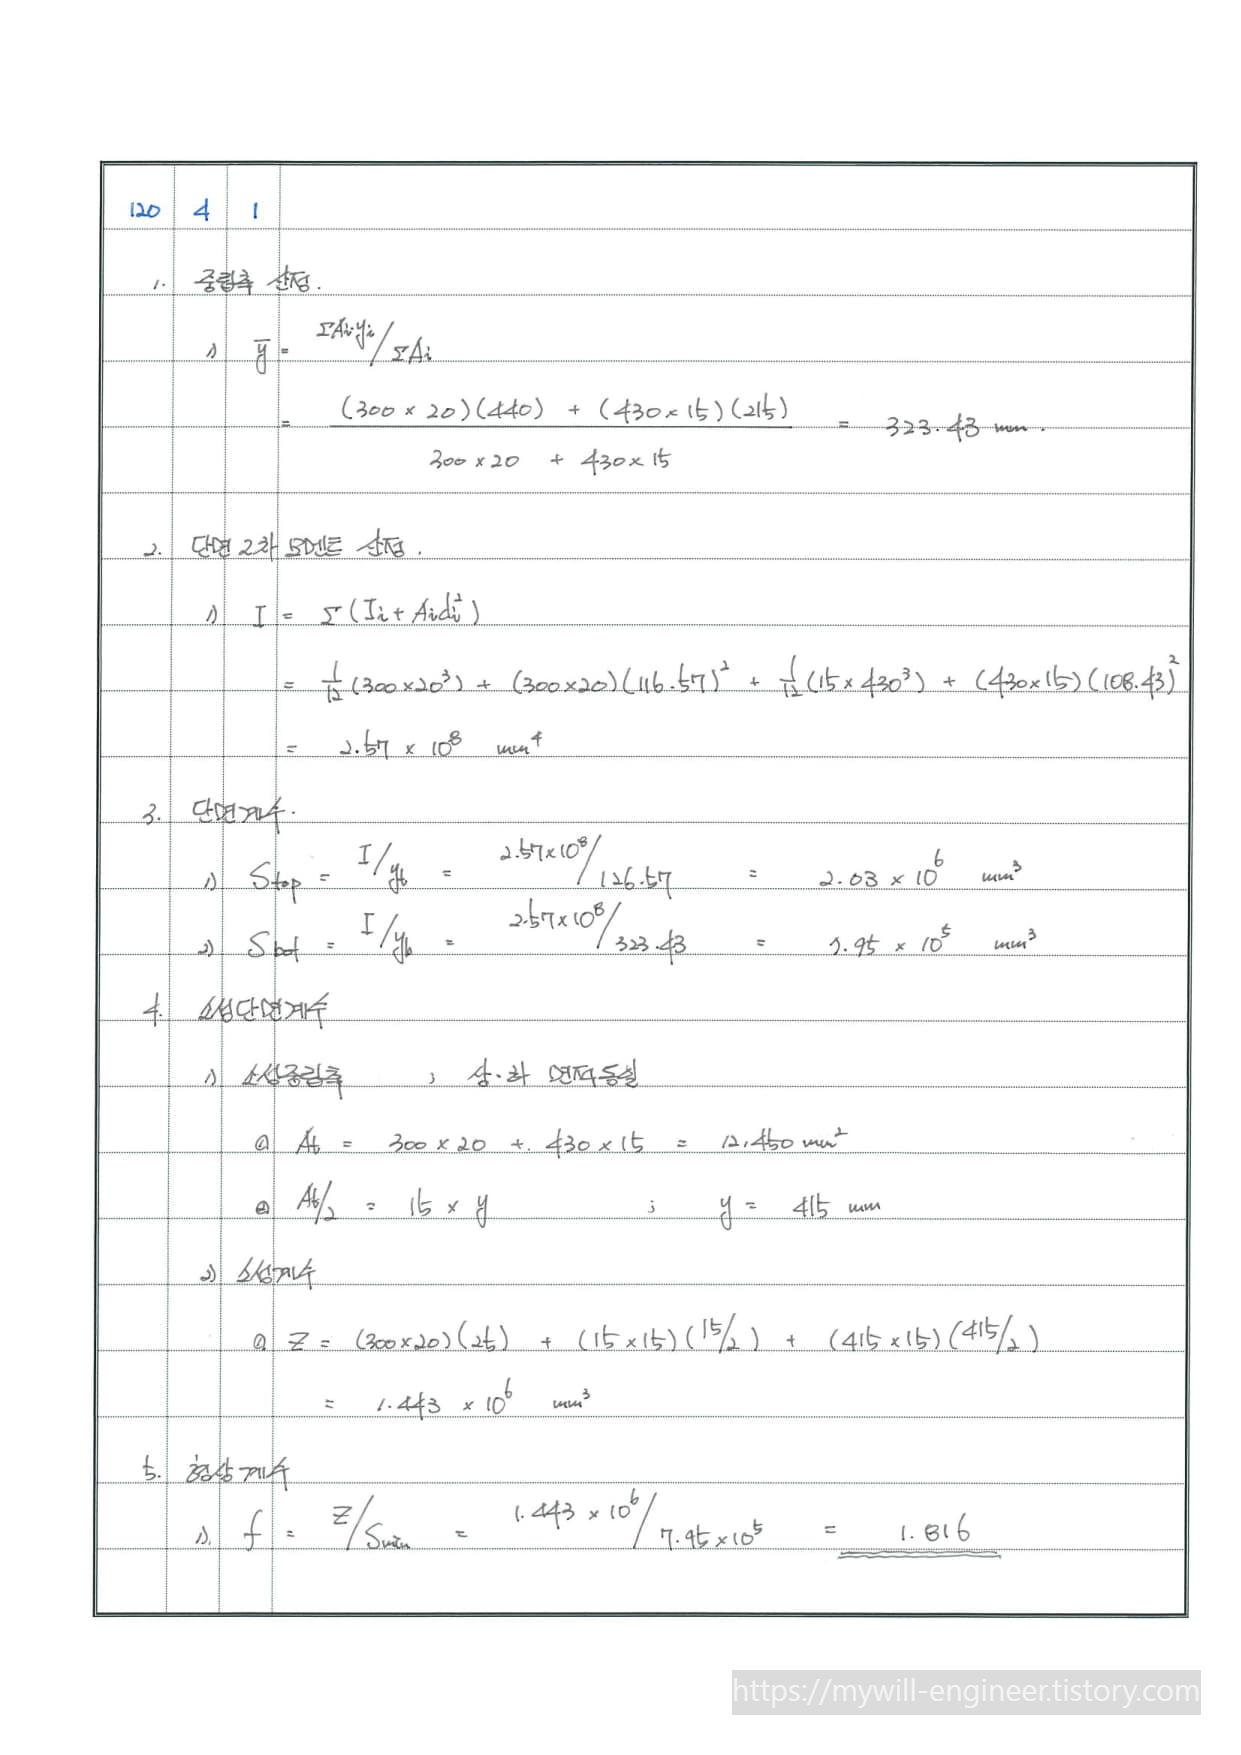 120 4 1
1. 중립축 산정.
1) ȳ = ΣAiyi / ΣAi
= (300 × 20)(440) + (430 × 15)(215) / 300 × 20 + 430 × 15 = 323.43 mm.
2. 단면2차 모멘트 산정.
1) I = Σ(Ii + Aidi²)
= 1/12 (300×20³) + (300×20)(116.57)² + 1/12 (15 × 430³) + (430×15)(108.43)²
= 2.57 × 10⁸ mm⁴
3. 단면계수.
1) Stop = I/yt = 2.57×10⁸/126.57 = 2.03 × 10⁶ mm³
2) Sbot = I/yb = 2.57×10⁸/323.43 = 7.95 × 10⁵ mm³
4. 소성단면계수
1) 소성중립축 ; 상·하 면적동일
① At = 300 × 20 + 430 × 15 = 12,450 mm²
② At/2 = 15 × y ; y = 415 mm
2) 소성계수
① Z = (300×20)(25) + (15×15)(15/2) + (415×15)(415/2)
= 1.443 × 10⁶ mm³
5. 형상계수
1) f = Z/Smin = 1.443 × 10⁶/7.95×10⁵ = 1.816
https://mywill-engineer.tistory.com